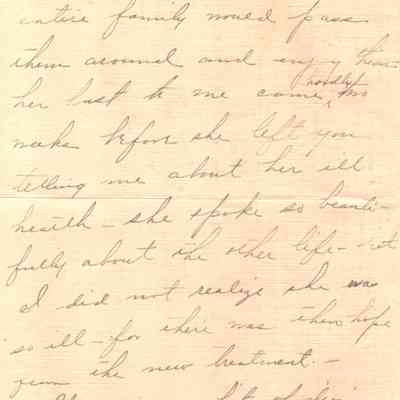 entire family would pass
them around and enjoy them
her last to me came hardly two
weeks before she left you
telling me about her ill
health - she spoke so beauti-
fully about the other life -
I did not realize she was
so ill - for there was then hope
from the new treatment. -